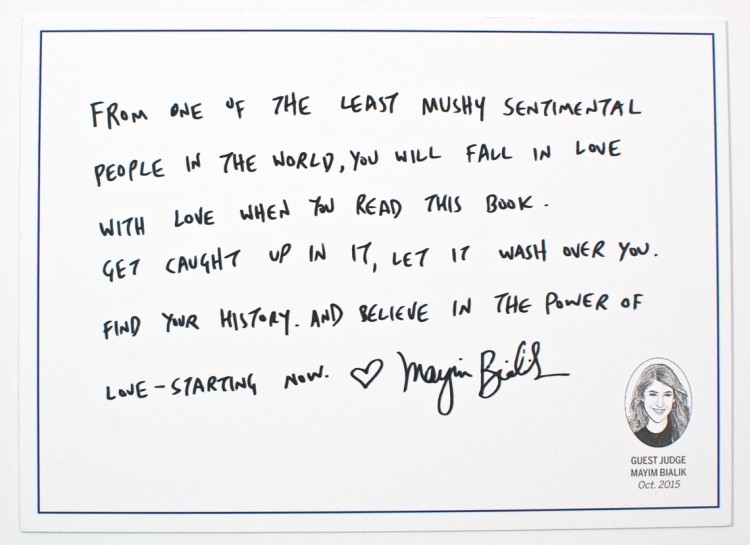 FROM ONE OF THE LEAST MUSHY SENTIMENTAL
PEOPLE IN THE WORLD, YOU WILL FALL IN LOVE
WITH LOVE WHEN YOU READ THIS BOOK.
GET CAUGHT UP IN IT, LET IT WASH OVER YOU.
FIND YOUR HISTORY. AND BELIEVE IN THE POWER OF
LOVE - STARTING NOW. ♡ Mayim Bialik
GUEST JUDGE
MAYIM BIALIK
Oct. 2015